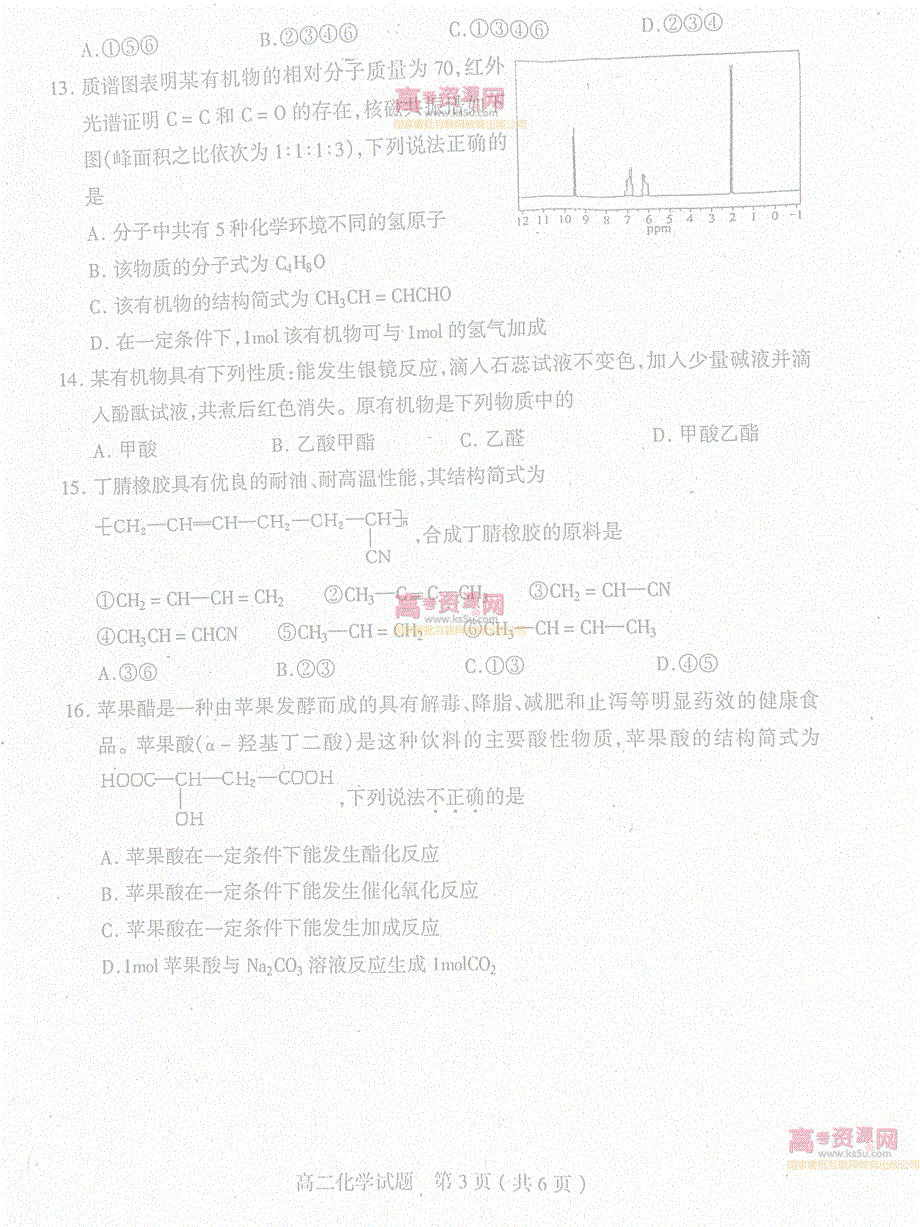 A.①⑤⑥ B.②③④⑥ C.①③④⑥ D.②③④
13. 质谱图表明某有机物的相对分子质量为 70,红外
光谱证明 C = C 和 C = O 的存在,核磁共振谱如下
图(峰面积之比依次为 1:1:1:3),下列说法正确的
是
12 11 10 9 8 7 6 5 4 3 2 1 0 -1
ppm
A. 分子中共有 5 种化学环境不同的氢原子
B. 该物质的分子式为 C₄H₈O
C. 该有机物的结构简式为 CH₃CH = CHCHO
D. 在一定条件下,1mol 该有机物可与 1mol 的氢气加成
14. 某有机物具有下列性质:能发生银镜反应,滴入石蕊试液不变色,加入少量碱液并滴
入酚酞试液,共煮后红色消失。原有机物是下列物质中的
A. 甲酸 B. 乙酸甲酯 C. 乙醛 D. 甲酸乙酯
15. 丁腈橡胶具有优良的耐油、耐高温性能,其结构简式为
[CH₂—CH=CH—CH₂—CH₂—CH]n ,合成丁腈橡胶的原料是
CN
①CH₂ = CH—CH = CH₂ ②CH₃—C=C—CH₃ ③CH₂ = CH—CN
④CH₃CH = CHCN ⑤CH₃—CH = CH₂ ⑥CH₃—CH = CH—CH₃
A.③⑥ B.②③ C.①③ D.④⑤
16. 苹果醋是一种由苹果发酵而成的具有解毒、降脂、减肥和止泻等明显药效的健康食
品。苹果酸(α - 羟基丁二酸)是这种饮料的主要酸性物质,苹果酸的结构简式为
HOOC—CH—CH₂—COOH ,下列说法不正确的是
OH
A. 苹果酸在一定条件下能发生酯化反应
B. 苹果酸在一定条件下能发生催化氧化反应
C. 苹果酸在一定条件下能发生加成反应
D.1mol 苹果酸与 Na₂CO₃ 溶液反应生成 1molCO₂
高二化学试题 第 3 页 ( 共 6 页 )
高考资源网
www.ks5u.com
国家最批互联网教育出版公司
高考资源网
www.ks5u.com
高考资源网
www.ks5u.com